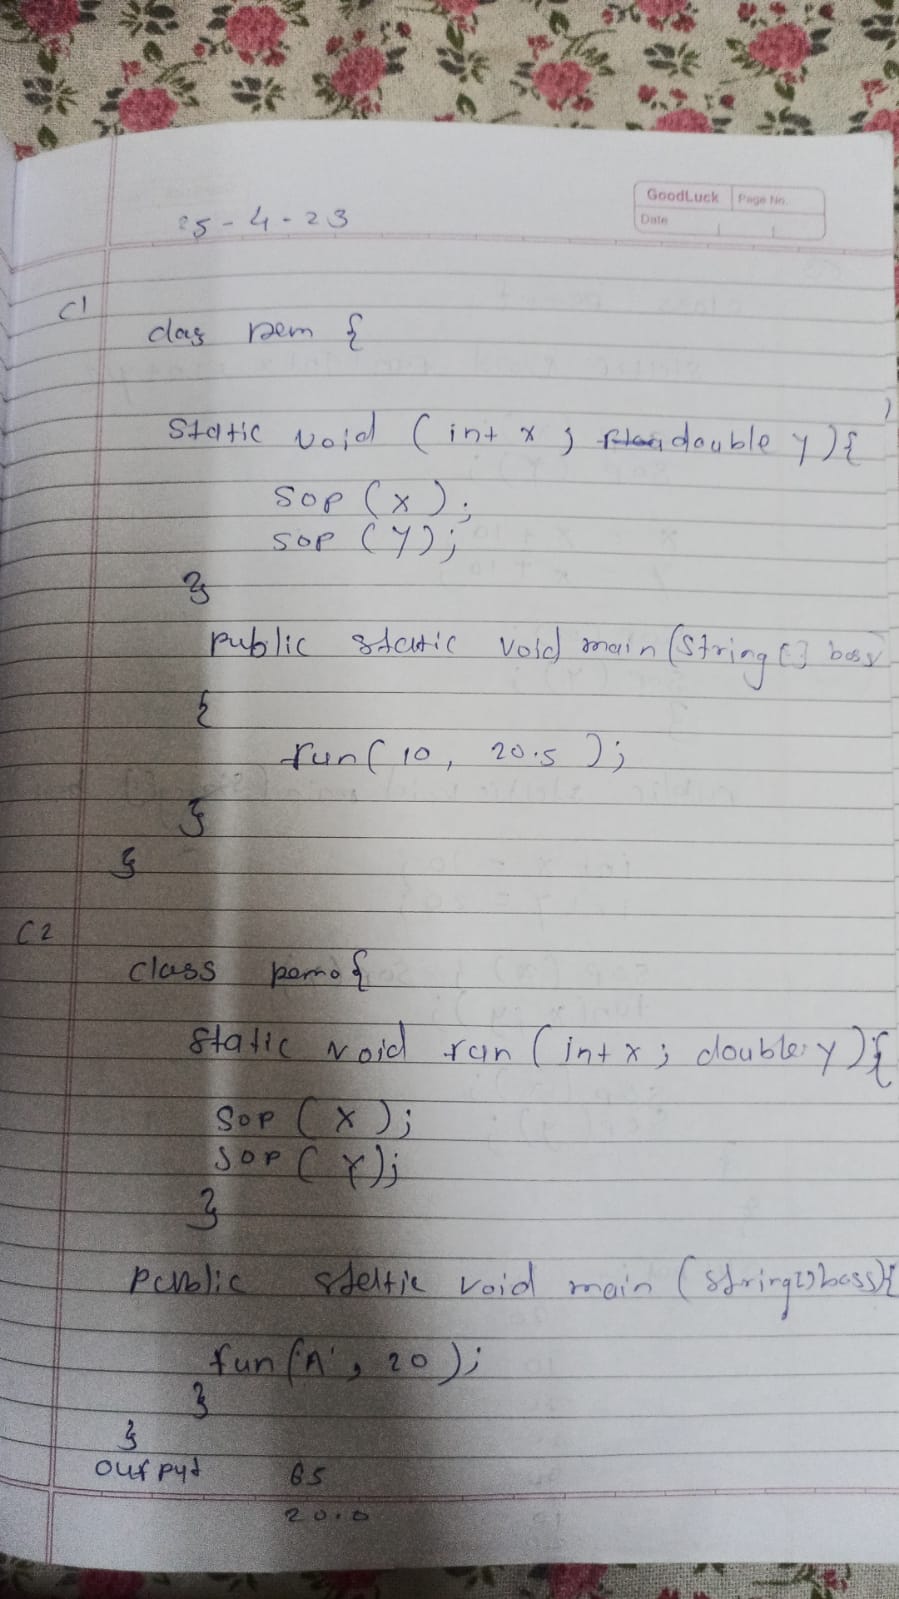 GoodLuck Page No.
Date
25-4-23
C1
class Dem {
static void (int x ; double y) {
SOP (x);
SOP (y);
}
public static void main (String [] boss
{
fun( 10, 20.5 );
}
}
C2
class Demo {
static void run (int x ; double y ) {
SOP ( x );
SOP ( Y );
}
public static void main (String[] boss) {
fun ('A', 20 );
}
}
output 65
20.0